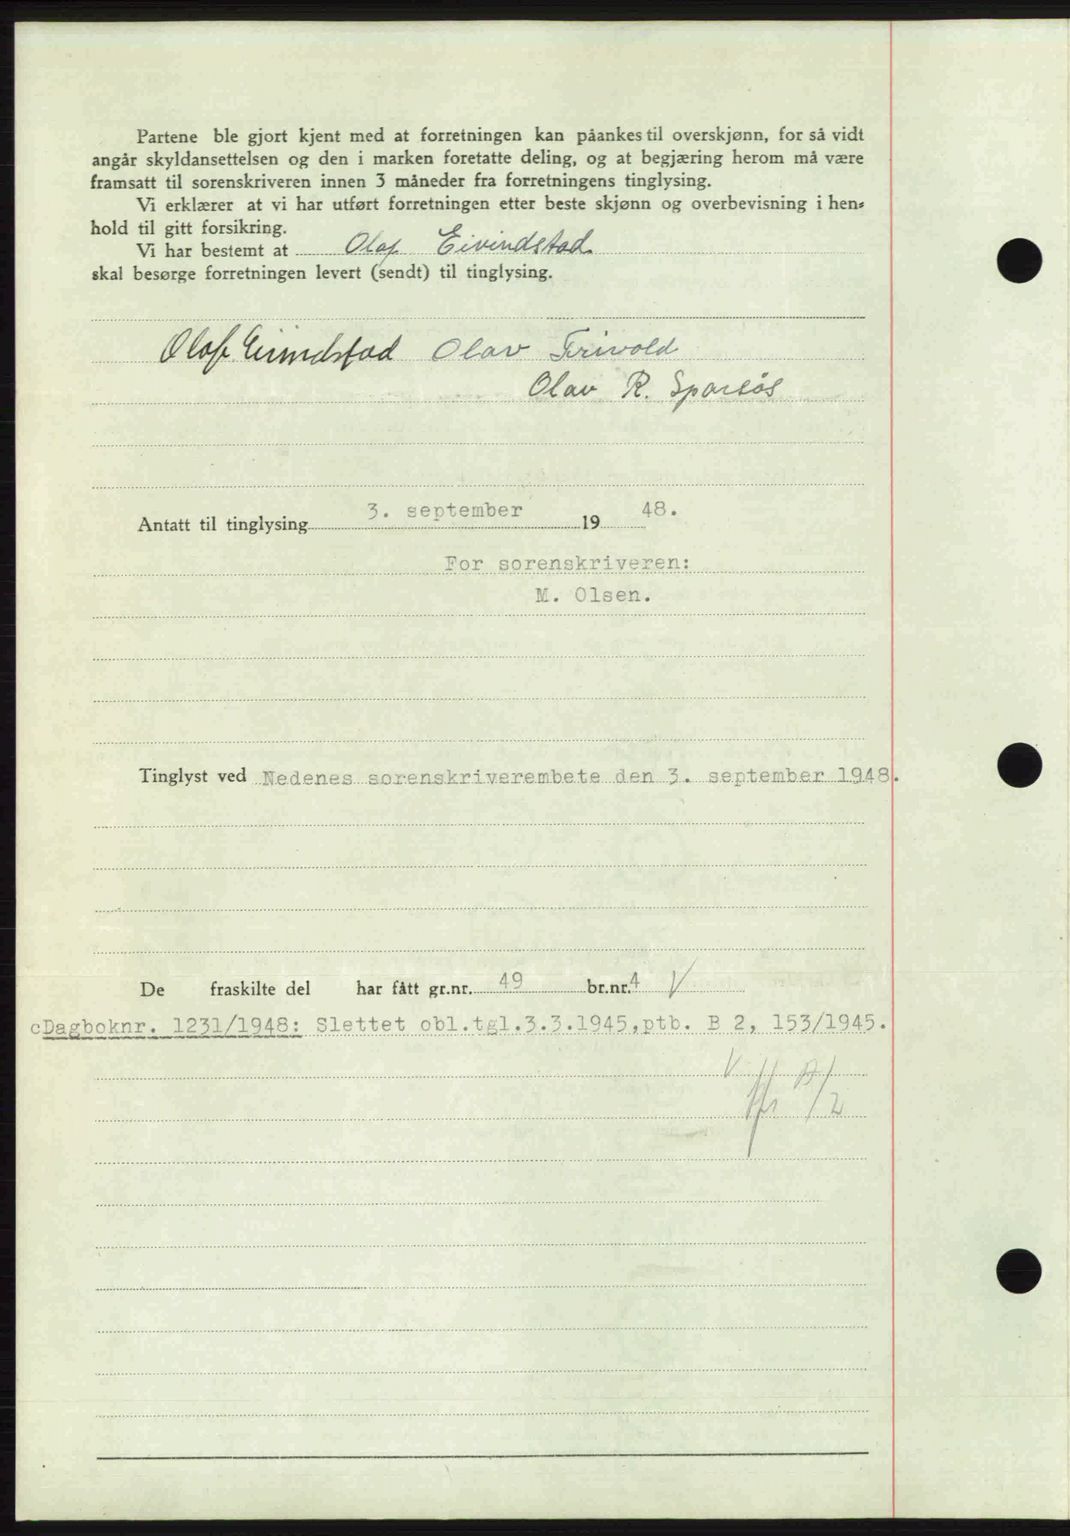 Partene ble gjort kjent med at forretningen kan påankes til overskjønn, for så vidt
angår skyldansettelsen og den i marken foretatte deling, og at begjæring herom må være
framsatt til sorenskriveren innen 3 måneder fra forretningens tinglysing.
Vi erklærer at vi har utført forretningen etter beste skjønn og overbevisning i hen-
hold til gitt forsikring.
Vi har bestemt at Olaf Eivindstad
skal besørge forretningen levert (sendt) til tinglysing.
Olaf Eivindstad Olav Trivold
Olav R. Sparsås
Antatt til tinglysing 3. september 1948.
For sorenskriveren:
M. Olsen.
Tinglyst ved Nedenes sorenskriverembete den 3. september 1948.
De fraskilte del har fått gr.nr. 49 br.nr. 4 V
cDagboknr. 1231/1948: Slettet obl.tgl.3.3.1945,ptb. B 2, 153/1945.
V